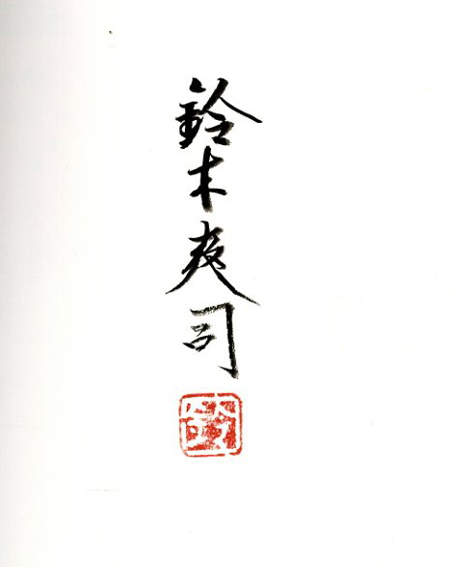 鈴木爽司